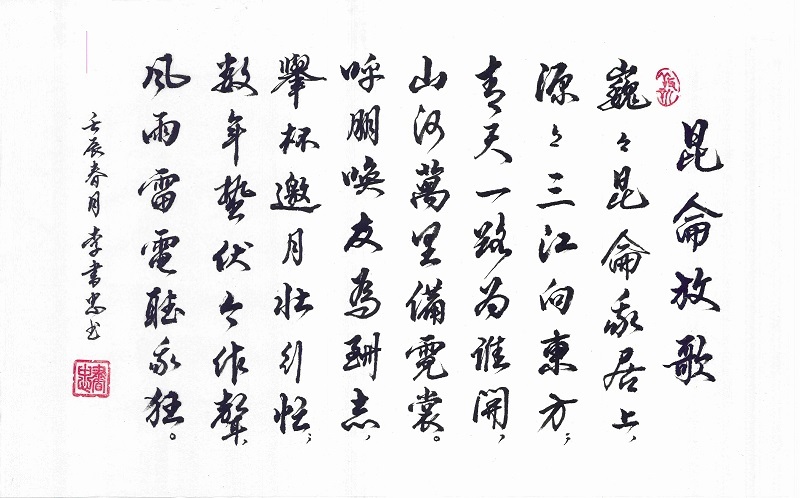 昆侖放歌
巍々昆侖我居上,
源々三江向東方;
青天一路为誰開,
山河萬里備霓裳。
呼朋喚友為酬志,
舉杯邀月壮引;
数年蟄伏今作聲,
風雨雷電聽我狂。
壬辰春月李書忠书
書忠